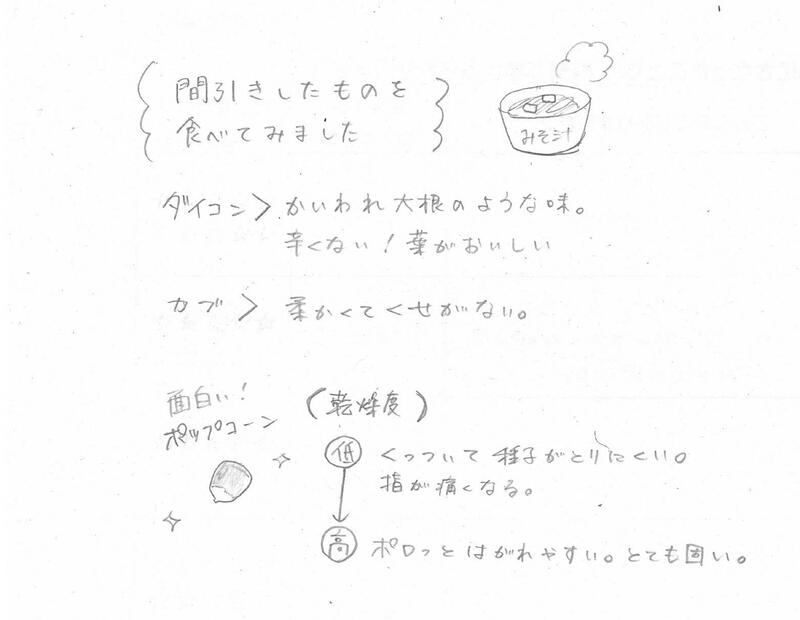 間引きしたものを
食べてみました
みそ汁
ダイコン> かいわれ大根のような味。
辛くない!葉がおいしい
カブ> 柔かくてくせがない。
面白い!
ポップコーン
(乾燥度)
低 くっついて種子がとりにくい。
指が痛くなる。
高 ポロっとはがれやすい。とても固い。